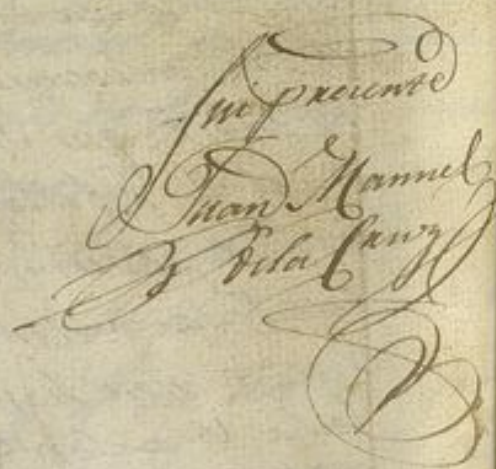 fui presente
Juan Manuel
de la Cruz